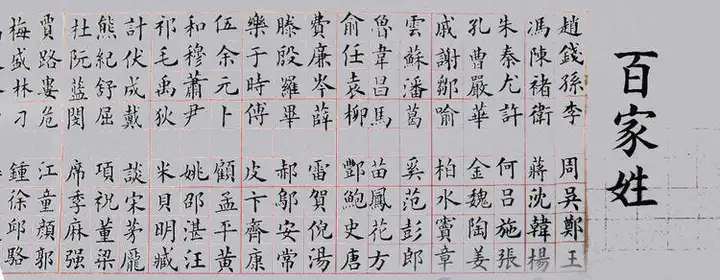 百家姓
趙錢孫李 周吳鄭王
馮陳褚衛 蔣沈韓楊
朱秦尤許 何呂施張
孔曹嚴華 金魏陶姜
戚謝鄒喻 柏水竇章
雲蘇潘葛 奚范彭郎
魯韋昌馬 苗鳳花方
俞任袁柳 酆鮑史唐
費廉岑薛 雷賀倪湯
滕殷羅畢 郝鄔安常
樂于時傅 皮卞齊康
伍余元卜 顧孟平黃
和穆蕭尹 姚邵湛汪
祁毛禹狄 米貝明臧
計伏成戴 談宋茅龐
熊紀舒屈 項祝董梁
杜阮藍閔 席季麻强
賈路婁危 江童顏郭
梅盛林刁 鍾徐邱駱